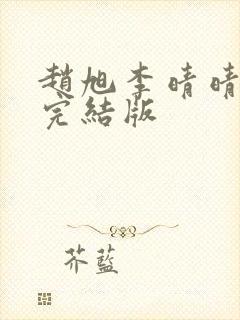 趙旭李晴晴
完結版
芥藍